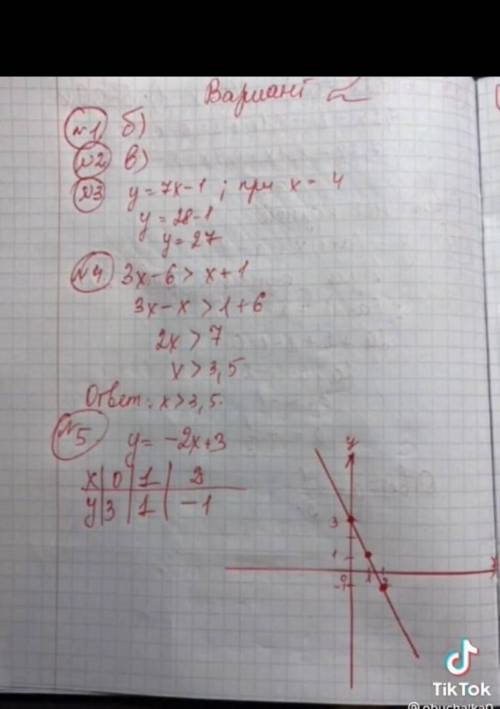 Вариант 2
№1 б)
№2 в)
№3 y = 7x-1 ; при x = 4
y = 28-1
y = 27
№4 3x-6 > x+1
3x-x > 1+6
2x > 7
x > 3,5
Ответ: x > 3,5.
№5 y = -2x+3
x | 0 | 1 | 2
y | 3 | 1 | -1
y
3
1
1 2
x
TikTok
@obuchajka0